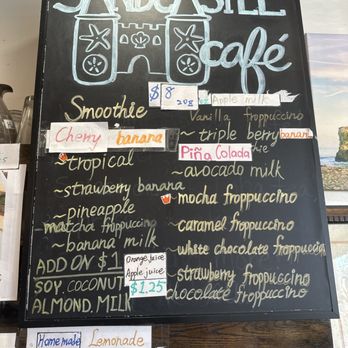 SANDCASTLE
café
$8
20oz
Apple milk
Smoothie
Vanilla froppuccino
Cherry banana
~ triple berry banana
Piña Colada
~tropical
~avocado milk
~strawberry banana
~mocha froppuccino
~pineapple
matcha froppuccino
~caramel froppuccino
~banana milk
~white chocolate froppuccino
ADD ON $1
Orange juice
Apple juice
$1.25
~strawberry froppuccino
SOY, COCONUT
chocolate froppuccino
ALMOND, MILK
Homemade Lemonade